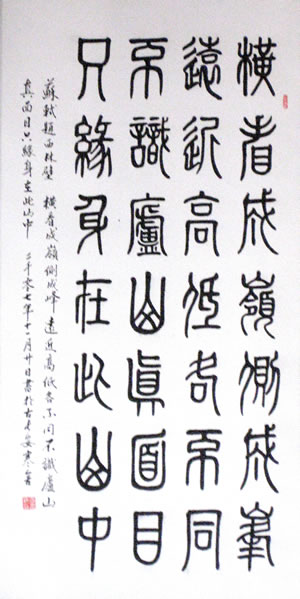 橫看成嶺側成峯
遠近高低各不同
不識廬山眞面目
只緣身在此山中
蘇軾題西林壁 橫看成嶺側成峰遠近高低各不同不識廬山
真面目只緣身在此山中 二千零七年十一月廿日書於古長安寒舍